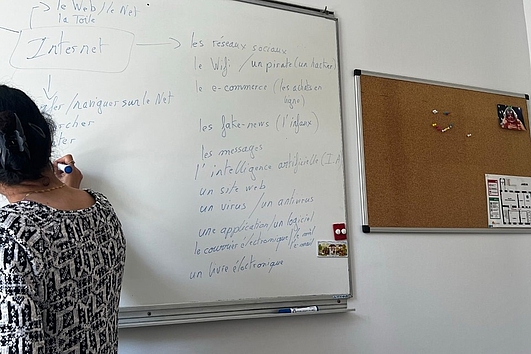 le Web / le Net
la Toile
Internet
les réseaux sociaux
le Wifi / un pirate (un hacker)
le e-commerce (les achats en
ligne)
/naviguer sur le Net
les fake-news (l'infaux)
les messages
l'intelligence artificielle (I.A)
un site web
un virus / un antivirus
une application/un logiciel
le courrier électronique / le mail
un livre électronique